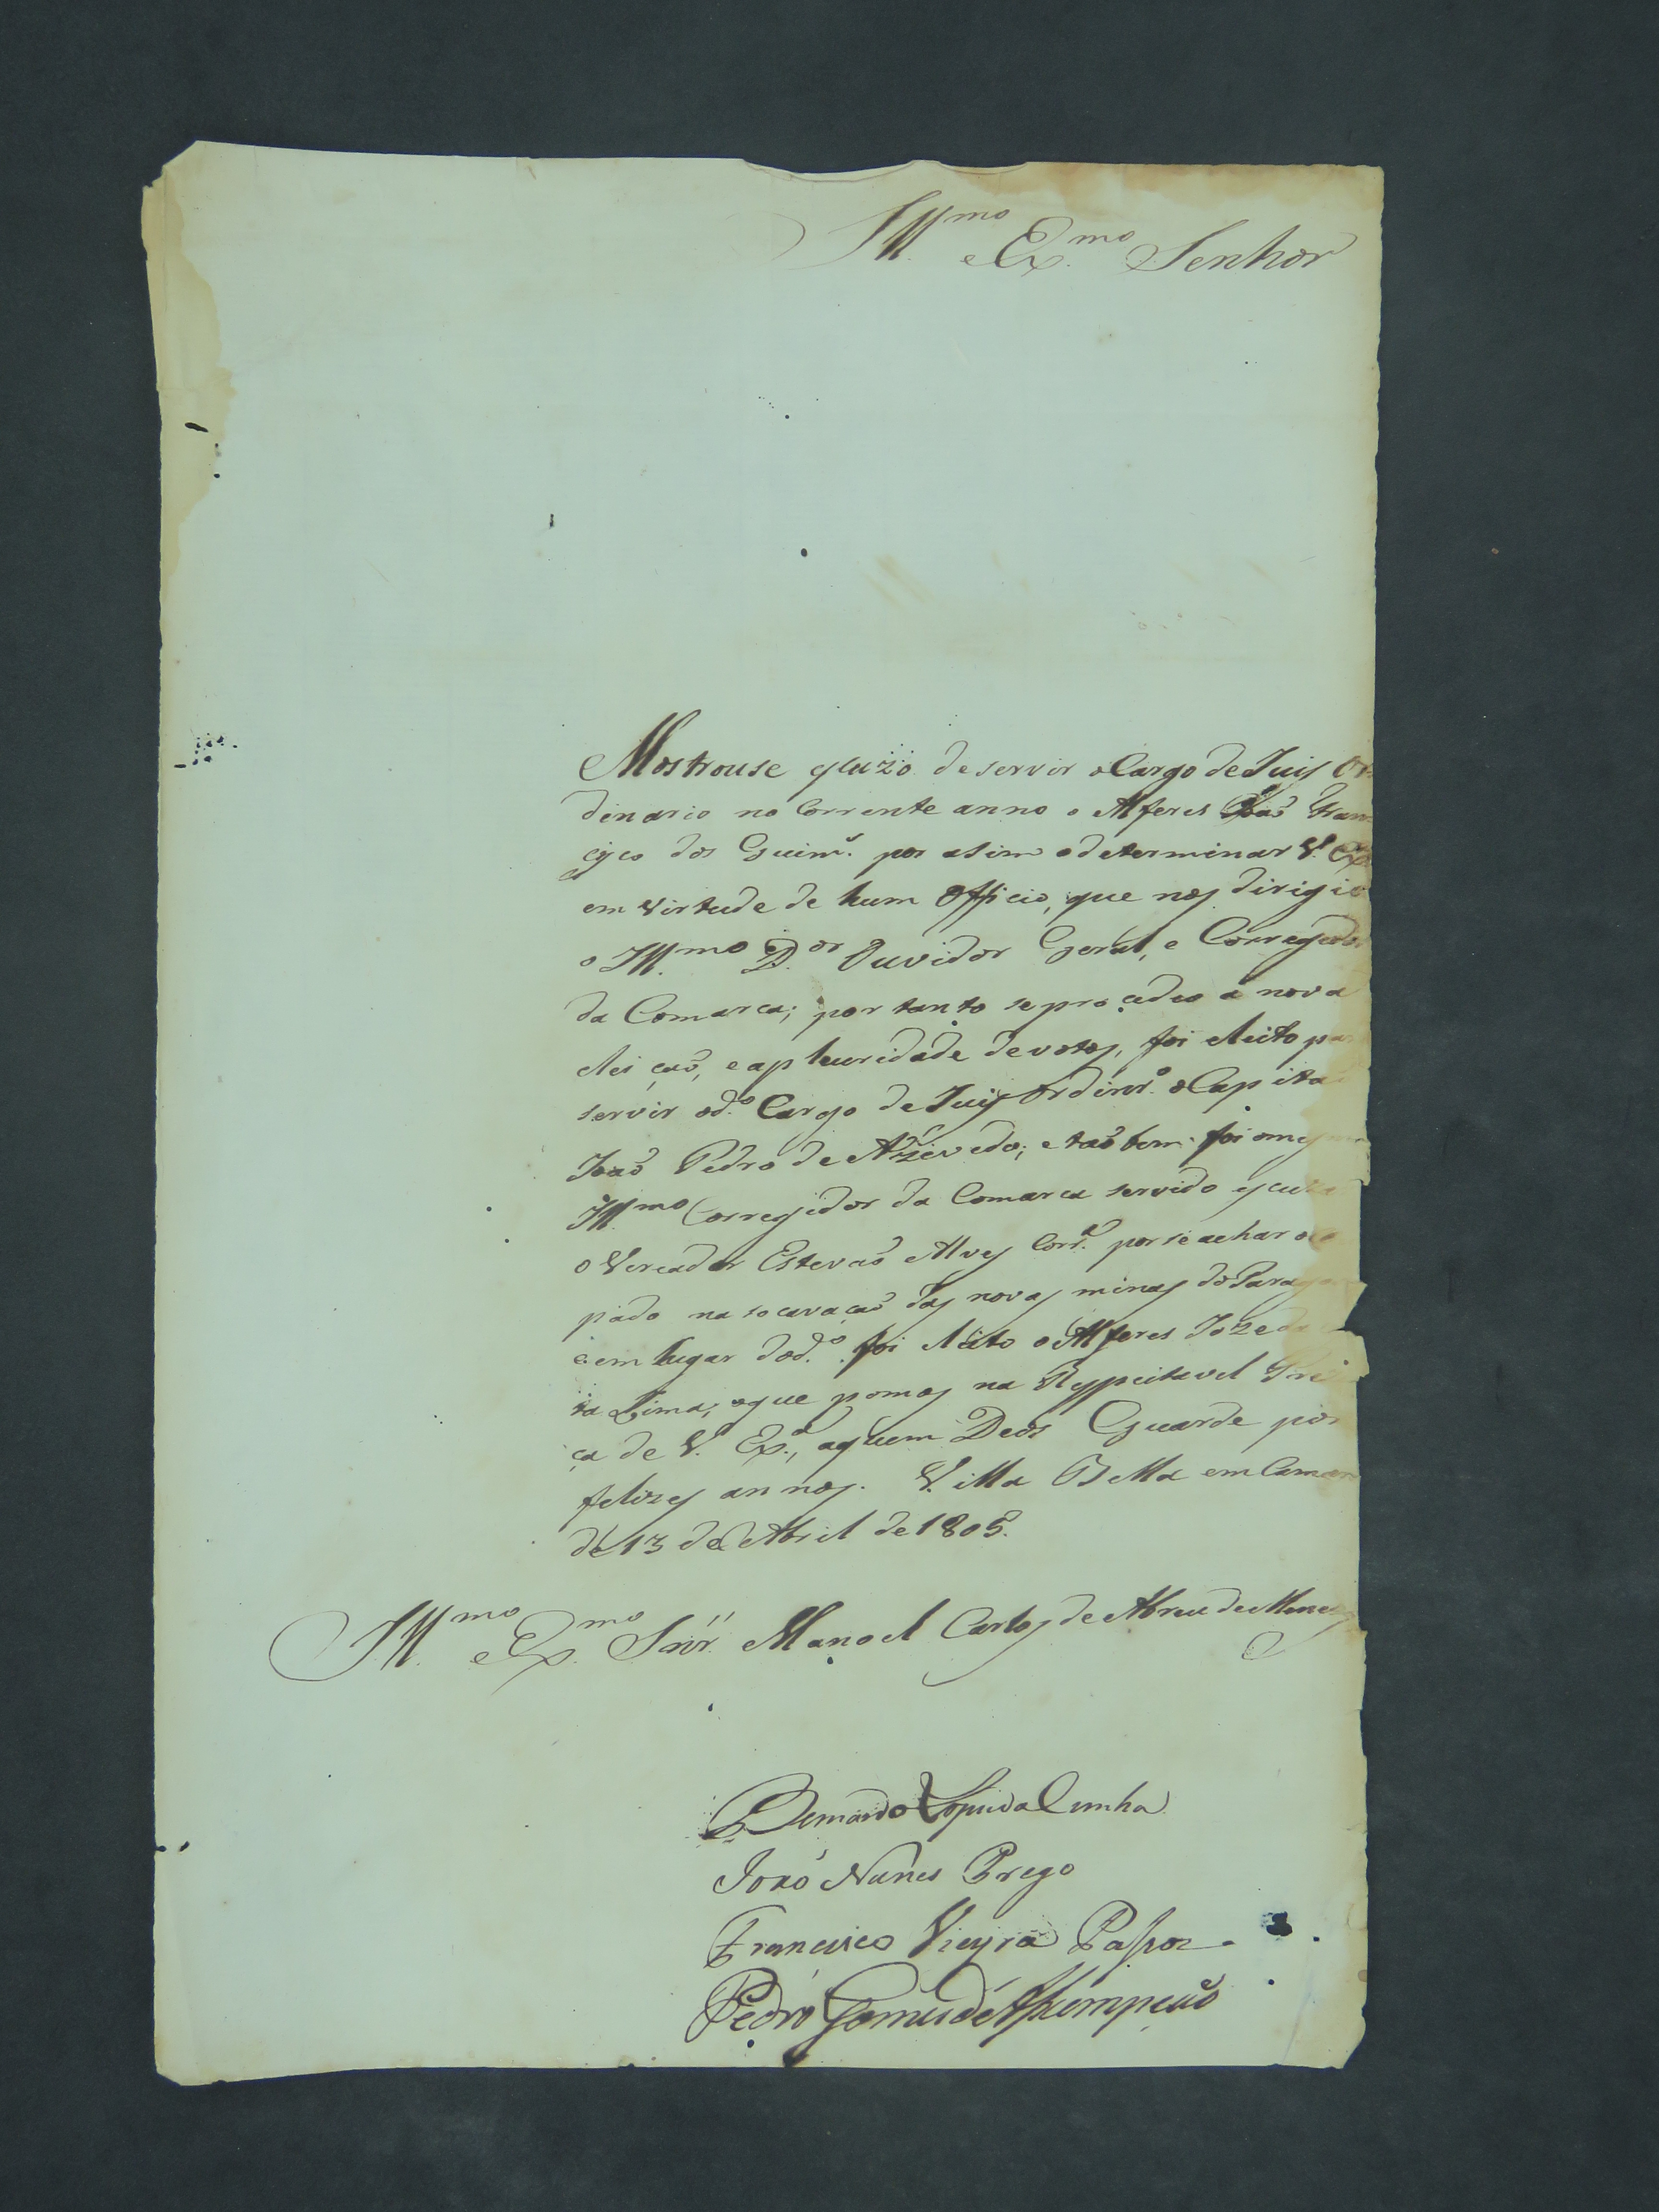 Ill.mo e Ex.mo Senhor
Mostrouse escuzo de servir o Cargo de Juis Or
dinario no Corrente anno o Alferes João Fran
cisco dos Guim.s por asim o determinar V. Ex
em Virtude de hum Officio, que nos dirigio
o Ill.mo D.or Ouvidor Geral, e Corregedor
da Comarca; por tanto se procedeo a nova
elei ção, e a pluridade de votos, foi eleito pa
servir o d.o Cargo de Juis Ordinr.o o Capita
João Pedro de Azevedo; e taõ bem foi o mes
Ill.mo Corregidor da Comarca servido escuza
o Vereador Estevaõ Alves Corr.a por se achar oc
pado na socavaçaõ das novas minas do Parag
e em lugar do d.o foi eleito o Alferes Joze da
ta Lima; o que pomos na Respeitavel Pre
ça de V. Ex.a, a quem Deos Guarde por
felizes annos. Villa Bella em Camar
de 13 de Abril de 1805.
Ill.mo e Ex.mo Snr. Manoel Carlos de Abreu de Menezes
Bernardo Lopes da Cunha
João Nunes Prego
Francisco Vieyra Passos
Pedro Gomes de